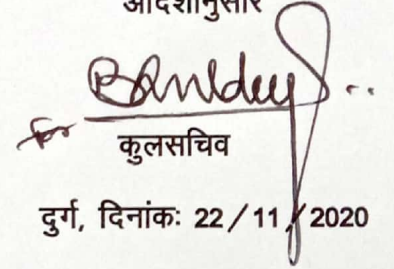 आदेशानुसार
for
कुलसचिव
दुर्ग, दिनांकः 22 / 11 / 2020